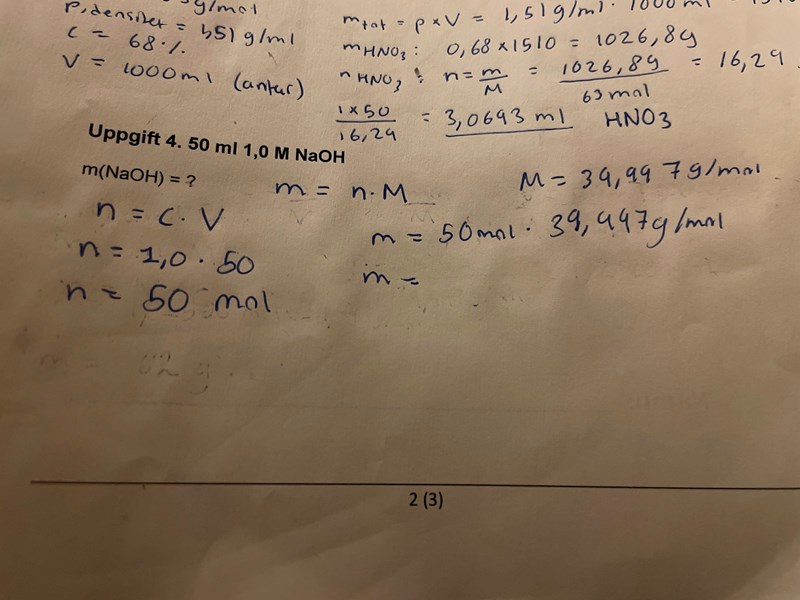 ρ, densitet = 1,51 g/ml
c = 68 %
V = 1000 ml (antar)
mtot = ρ × V = 1,51 g/ml · 1000 ml
mHNO3: 0,68 × 1510 = 1026,8g
nHNO3: n = m/M = 1026,8g / 63 mol = 16,29
1×50 / 16,29 = 3,0693 ml HNO3
Uppgift 4. 50 ml 1,0 M NaOH
m(NaOH) = ?
m = n · M
M = 39,997 g/mol
n = C · V
m = 50 mol · 39,997 g/mol
n = 1,0 · 50
m =
n = 50 mol
2 (3)